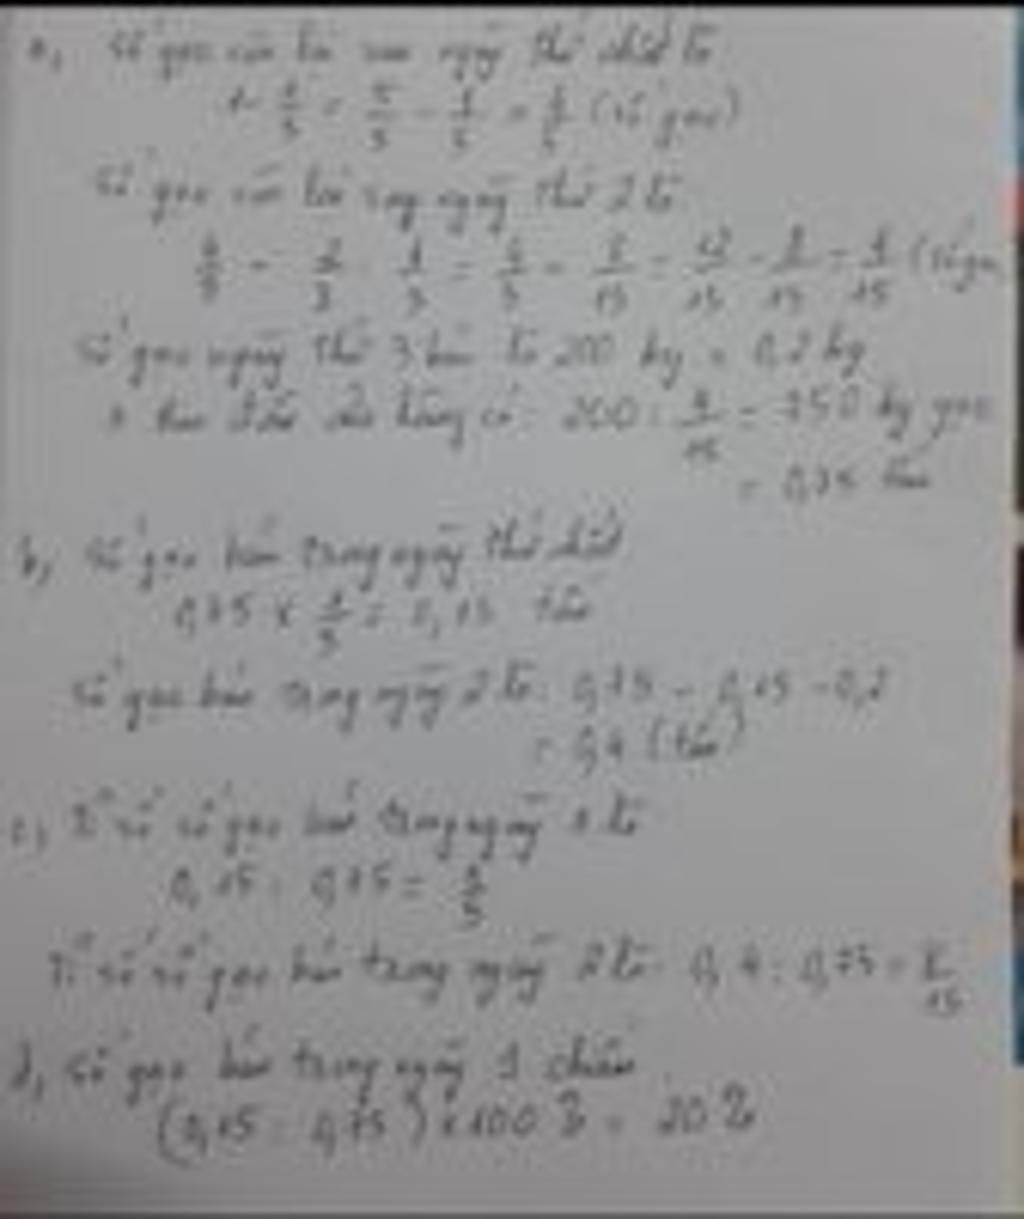 a, Số gạo còn lại sau ngày thứ nhất là
1 - 1/5 = 5/5 - 1/5 = 4/5 (số gạo)
Số gạo còn lại sau ngày thứ 2 là
4/5 - 2/3 . 4/5 = 4/5 - 8/15 = 12/15 - 8/15 = 4/15 (số gạo
Số gạo ngày thứ 3 bán là 200 kg = 0,2 kg
ban đầu cửa hàng có: 200 : 4/15 = 750 kg gạo
= 0,75 tấn
b, Số gạo bán trong ngày thứ nhất
0,75 x 1/5 = 0,15 tấn
Số gạo bán trong ngày 2 là: 0,75 - 0,15 - 0,2
= 0,4 (tấn)
c, Tỉ số số gạo bán trong ngày 1 là
0,15 : 0,75 = 1/5
Tỉ số số gạo bán trong ngày 2 là: 0,4 : 0,75 = 8/15
d, Số gạo bán trong ngày 1 chiếm
(0,15 : 0,75) x 100 % = 20 %